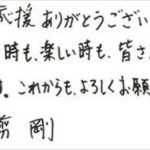 応援ありがとうござい
時も、楽しい時も、皆さ
す。これからも、よろしくお願
剛